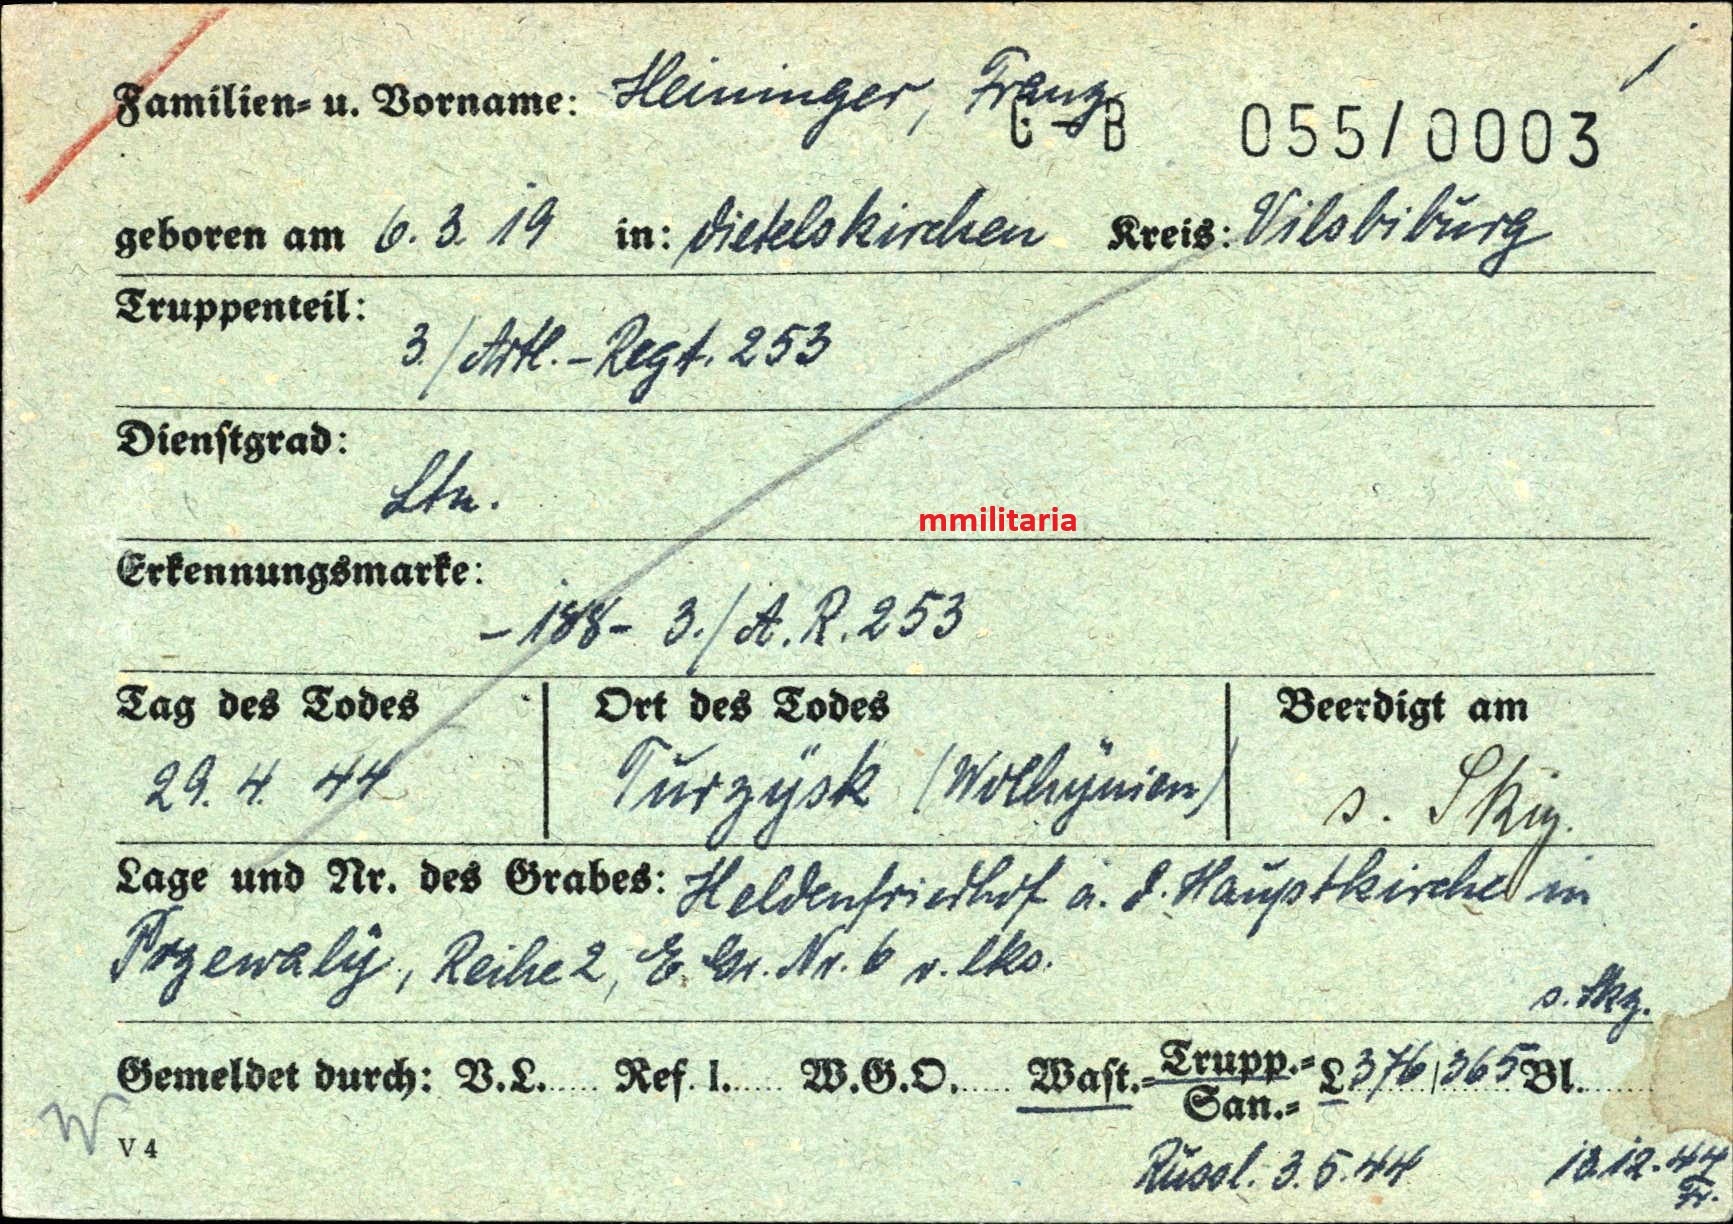 Familien- u. Vorname: Heininger, Franz
G-B 055/0003
geboren am 6.3.19 in: Dietelskirchen Kreis: Vilsbiburg
Truppenteil:
3./Artl.-Regt. 253
Dienstgrad:
Ltn.
mmilitaria
Erkennungsmarke:
-188- 3./A.R. 253
Tag des Todes Ort des Todes Beerdigt am
29.4.44 Turzysk (Wolhynien) s. Skizz.
Lage und Nr. des Grabes: Heldenfriedhof a. d. Hauptkirche in
Przewaly, Reihe 2, E. Gr. Nr. 6 v. lks.
s. Skz.
Gemeldet durch: V.L. Ref. I. W.G.O. Wast.- Trupp.- L 376/365 Bl.
San.-
V 4
Russl. 3.5.44 13.12.44
Fr.